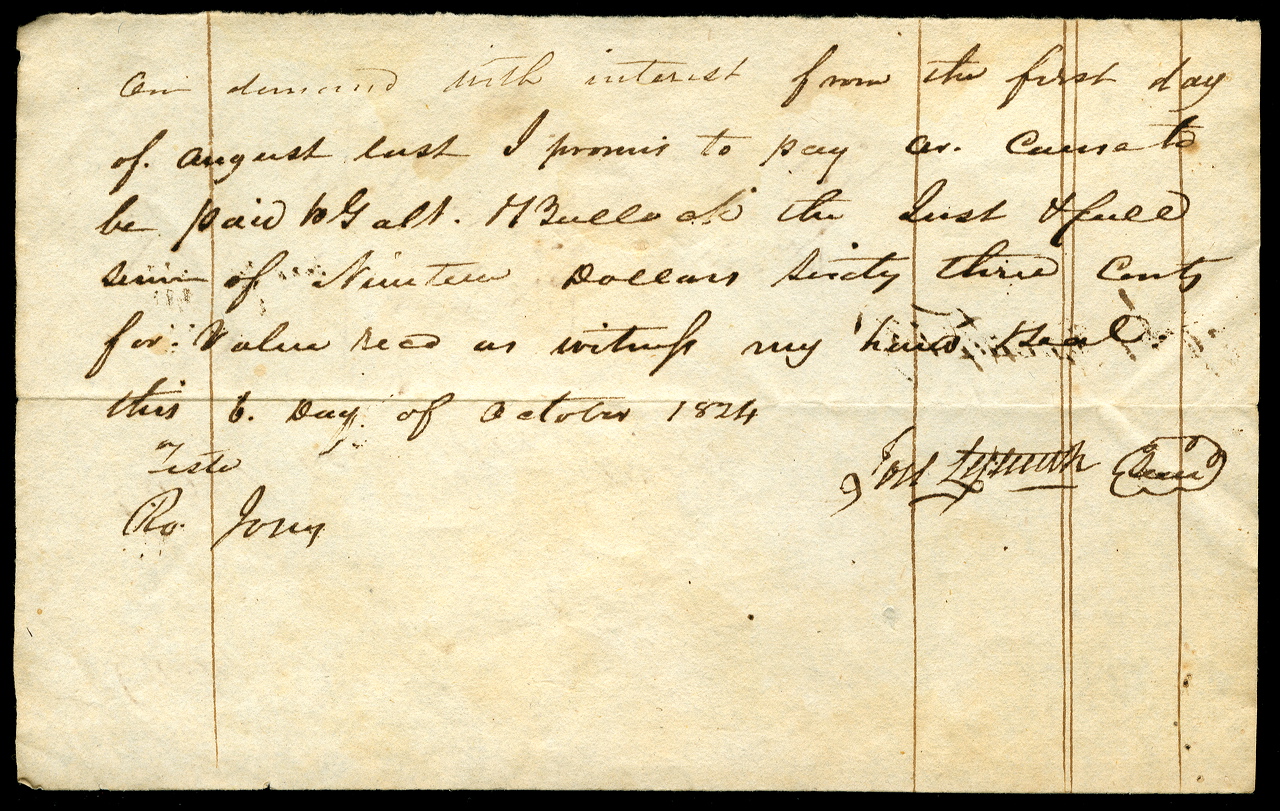 On demand with interest from the first day
of August last I promis to pay or. Cause to
be paid to Galt. & Bullock the Just & full
sum of Nineteen Dollars Sixty three Cents
for. Value Recd as witness my hand & Seal.
this 6. Day of October 1824
Teste
Ro. Jones
Seal